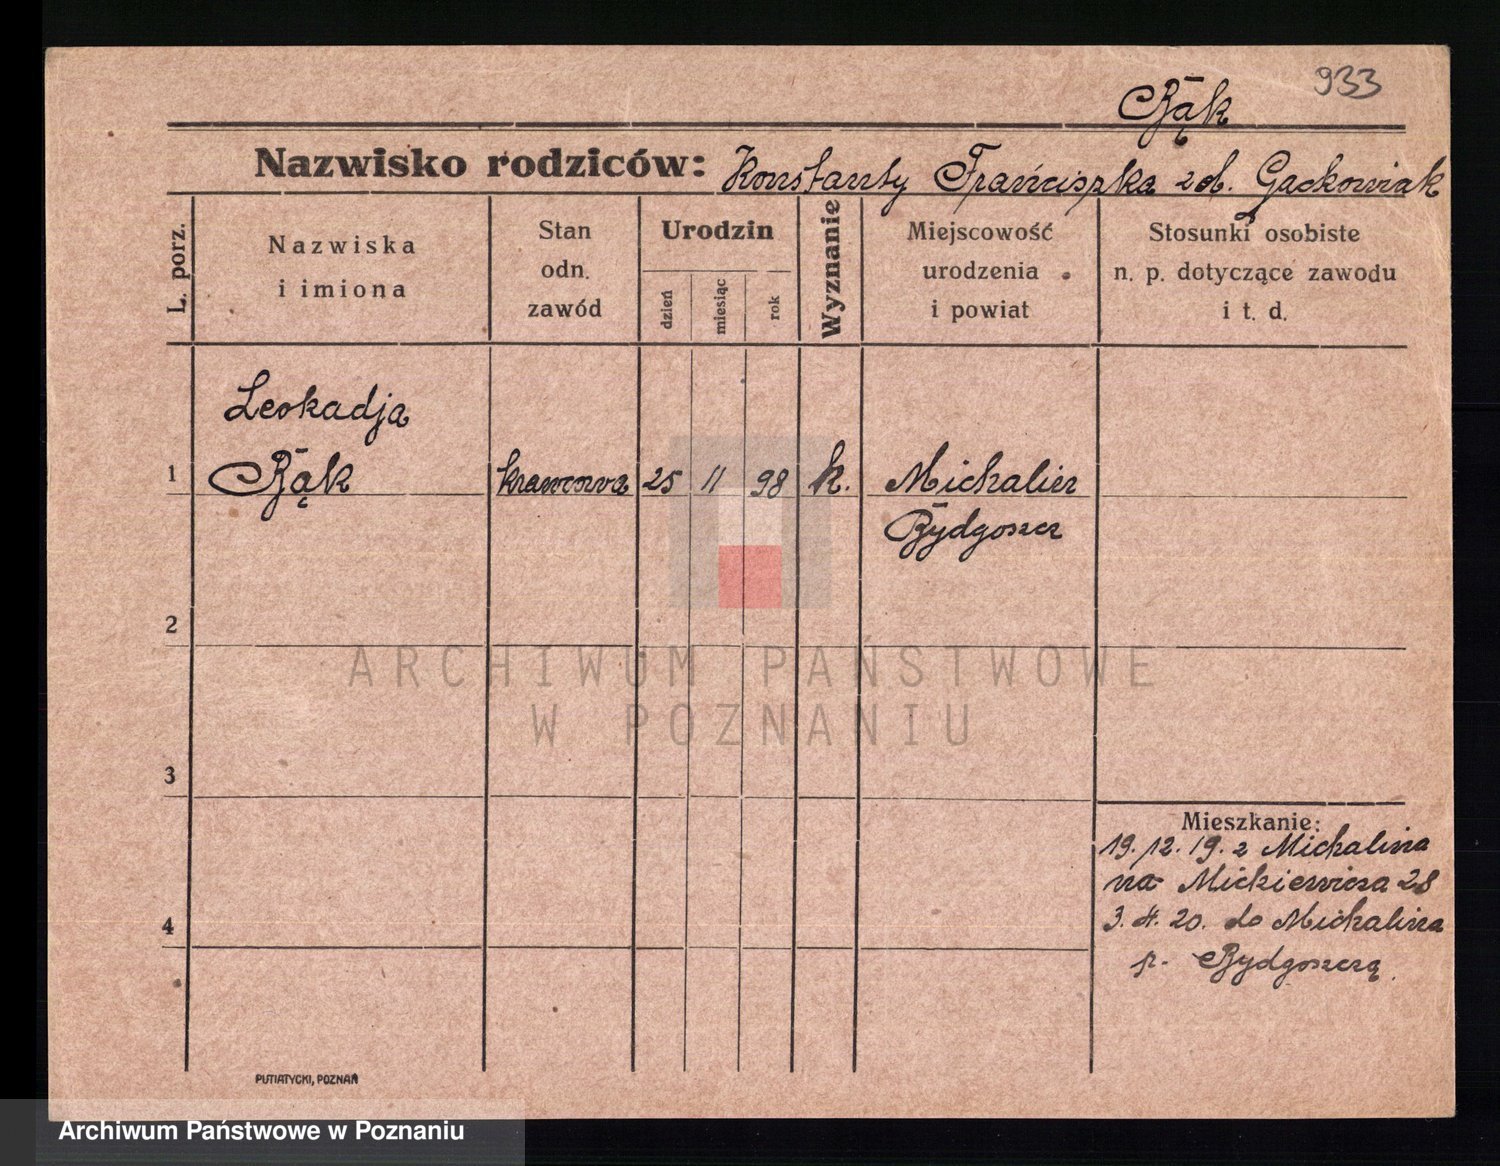 933
Bąk
Nazwisko rodziców: Konstanty Franciszka zd. Gackowiak
L. porz.
Nazwiska
i imiona
Stan
odn.
zawód
Urodzin
dzień
miesiąc
rok
Wyznanie
Miejscowość
urodzenia
i powiat
Stosunki osobiste
n. p. dotyczące zawodu
i t. d.
Leokadja
1 Bąk krawcowa 25 11 98 k. Michalin
Bydgoszcz
2
ARCHIWUM PAŃSTWOWE
W POZNANIU
3
Mieszkanie:
19. 12. 19. z Michalina
na Mickiewicza 28
4 3. 4. 20. do Michalina
p. Bydgoszczą.
PUTIATYCKI, POZNAŃ
Archiwum Państwowe w Poznaniu